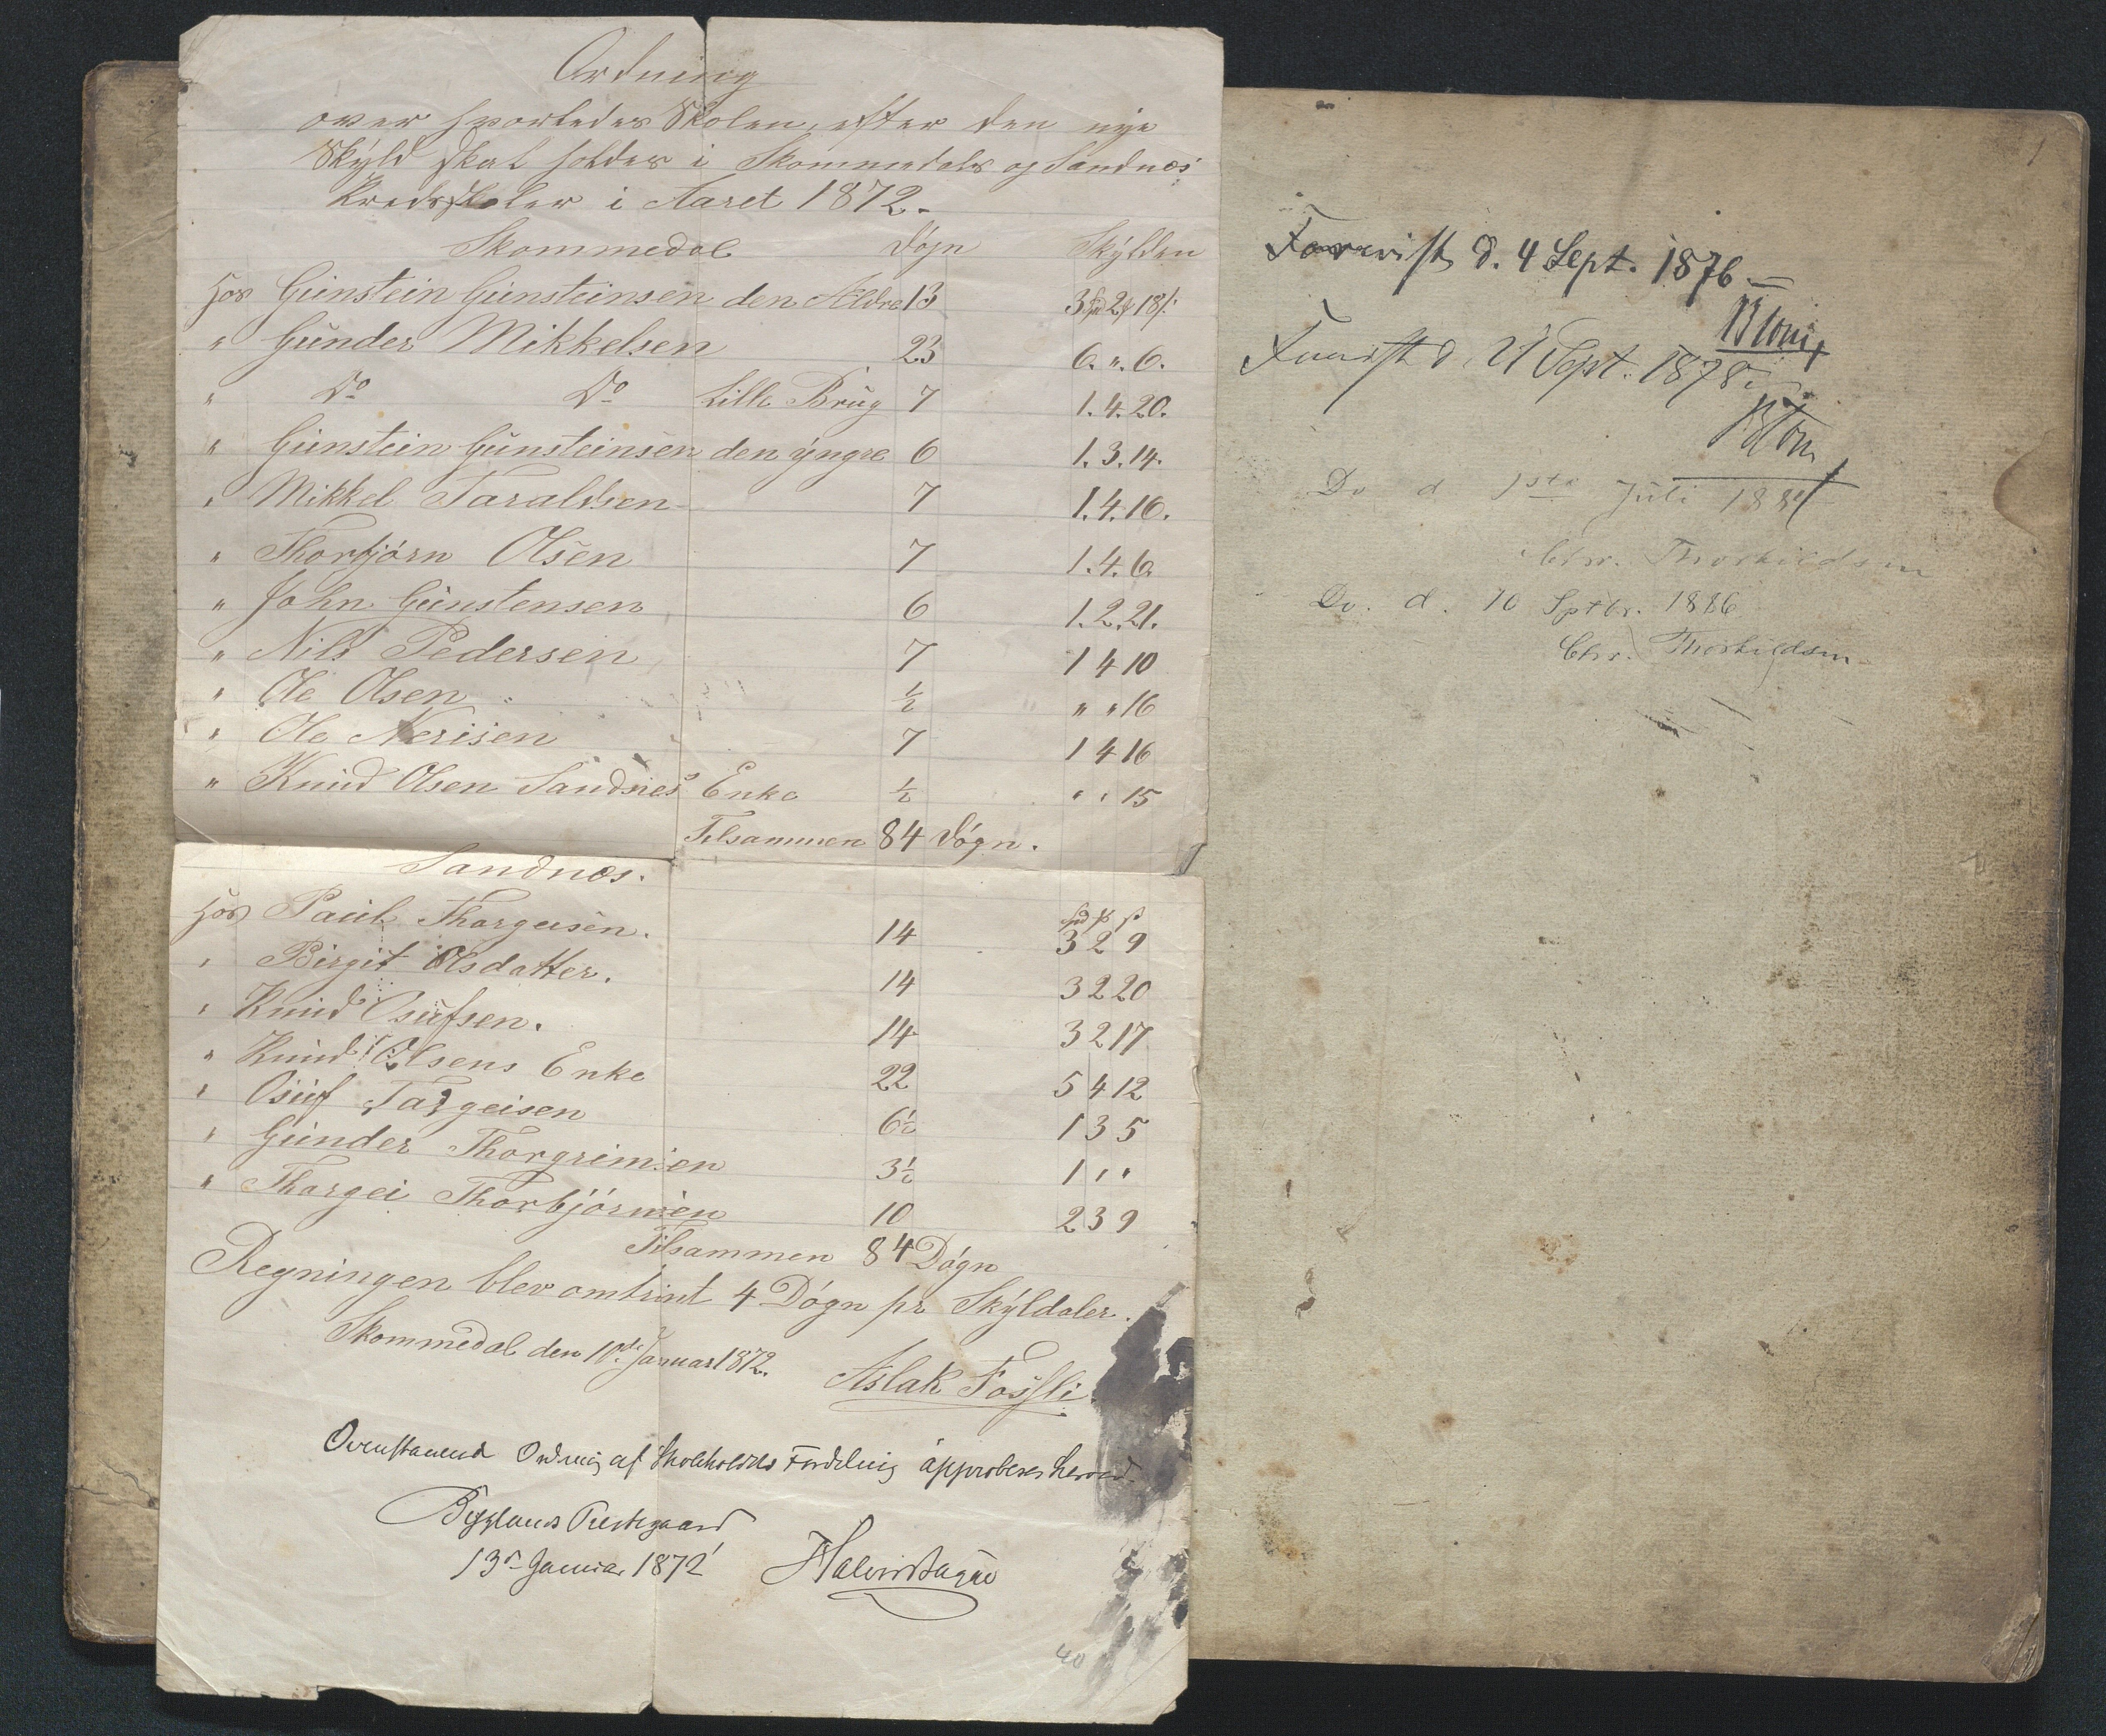 Ordning
over hvorledes Skolen, efter den nye
Skyld skal holdes i Skommedals og Sandnæs
Kredsskoler i Aaret 1872.
Skommedal Døgn Skylden
hos Gunstein Gunsteinsen den Ældre 13 3 Spd 2 ort 18 s:
" Gunder Mikkelsen 23 6. ". 6.
" Do Do Lille Brug 7 1. 4. 20.
" Gunstein Gunsteinsen den yngre 6 1. 3. 14.
" Mikkel Taraldsen 7 1. 4. 16.
" Thorbjørn Olsen 7 1. 4. 6.
" John Gunstensen 6 1. 2. 21.
" Nils Pedersen 7 1 4 10
" Ole Olsen ½ " " 16
" Ole Nerisen 7 1 4 16
" Knud Olsen Sandnes Enke ½ " " 15
Tilsammen 84 Døgn.
Sandnæs.
Spd ort s
hos Paul Thorgeisen. 14 3 2 9
" Birgit Olsdatter. 14 3 2 20
" Knud Osufsen. 14 3 2 17
" Knud Olsens Enke 22 5 4 12
" Osuf Targeisen 6½ 1 3 5
" Gunder Thorgrimsen 3½ 1 " "
" Thorgei Thorbjørnsen 10 2 3 9
Tilsammen 84 Døgn
Regningen blev omtrint 4 Døgn pr Skyldaler.
Skommedal den 10de Januar 1872.
Aslak Fossli
Ovenstaaende Ordning af Skoleholdets Fordeling approberes herved.
Byglands Præstegaard
13de Januar 1872
40
1
Forevist d. 4 Sept. 1876
Blom
Forevist d. 21 Sept. 1878.
Blom
Do d 1ste Juli 1884
Chr. Thorkildsen
Do. d. 10 Sptbr. 1886
Chr. Thorkildsen